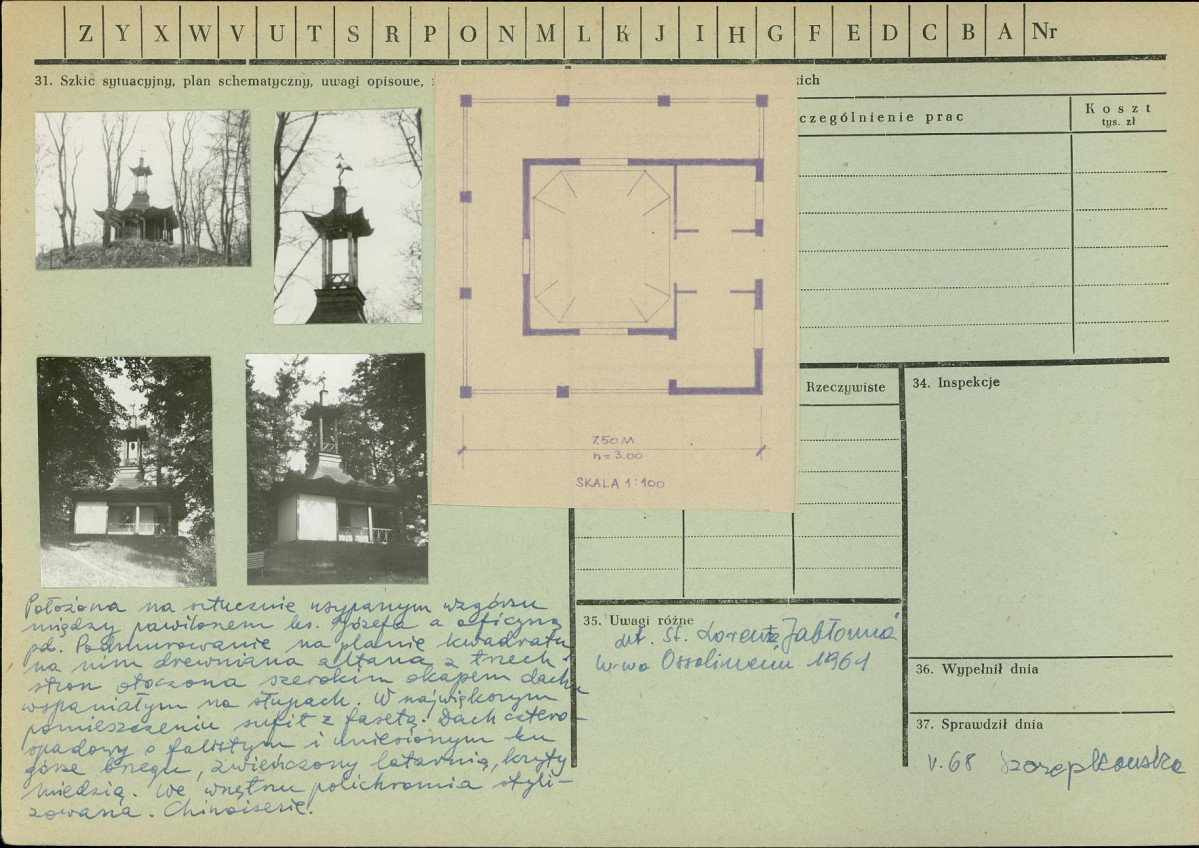 Z Y X W V U T S R P O N M L K J I H G F E D C B A Nr
31. Szkic sytuacyjny, plan schematyczny, uwagi opisowe,
kich
czególnienie prac
Koszt
tys. zł
7.50 M
h = 3.00
SKALA 1:100
Rzeczywiste
34. Inspekcje
Położona na sztucznie usypanym wzgórzu
między pawilonem ks. Józefa a oficyną
pd. Podmurowanie na planie kwadratu
na nim drewniana altana z trzech
stron otoczona szerokim okapem dachu
wspaniałym na słupach. W największym
pomieszczeniu sufit z fasetą. Dach cztero-
spadowy o falistym i uniesionym ku
górze brzegu, zwieńczony latarnią, kryty
miedzią. We wnętrzu polichromia styli-
zowana. Chinoiserie.
35. Uwagi różne
St. Lorentz "Jabłonna"
Ossolineum 1961
36. Wypełnił dnia
37. Sprawdził dnia
V.68 Szczepkowska